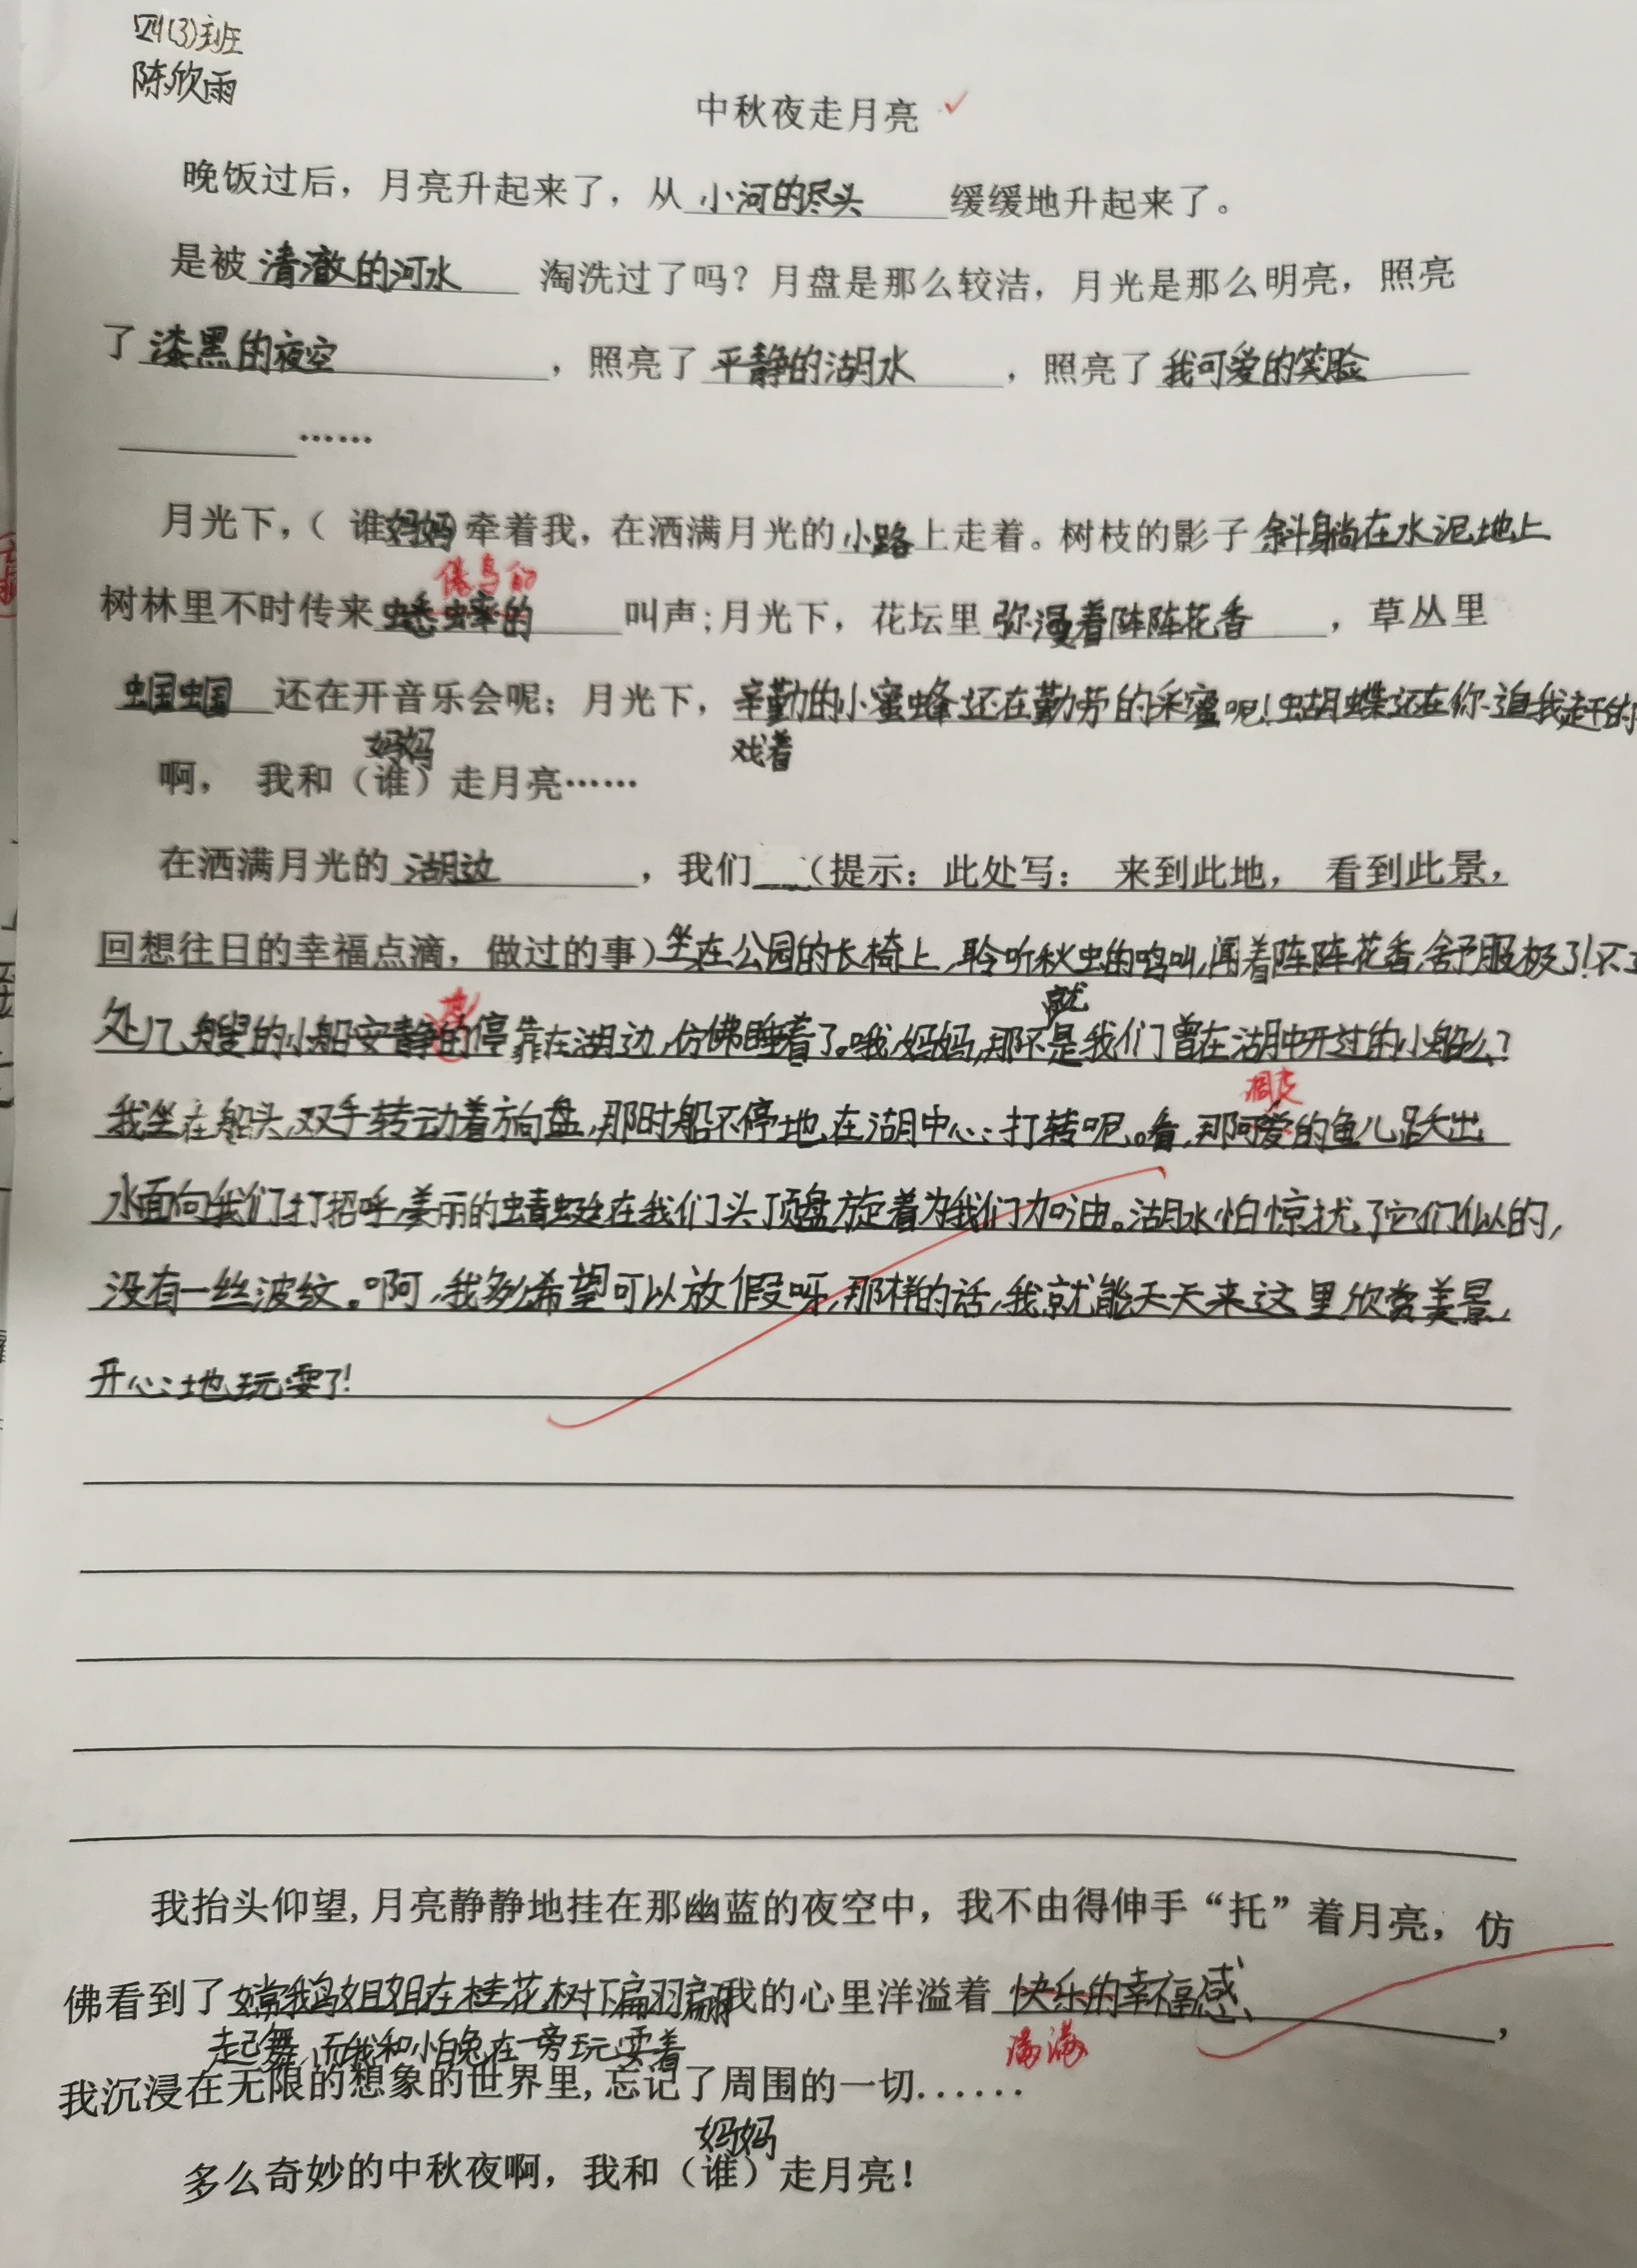 四(3)班
陈欣雨
中秋夜走月亮
晚饭过后，月亮升起来了，从小河的尽头缓缓地升起来了。
是被清澈的河水 淘洗过了吗？月盘是那么较洁，月光是那么明亮，照亮
了漆黑的夜空，照亮了平静的湖水，照亮了我可爱的笑脸
……
月光下，（谁妈妈）牵着我，在洒满月光的小路上走着。树枝的影子斜躺在水泥地上
倦鸟的
树林里不时传来蟋蟀的叫声；月光下，花坛里弥漫着阵阵花香，草丛里
蝈蝈还在开音乐会呢；月光下，辛勤的小蜜蜂还在勤劳的采蜜呢！蝴蝶还在你追我赶的
妈妈 戏着
啊， 我和（谁）走月亮……
在洒满月光的湖边，我们（提示：此处写： 来到此地， 看到此景，
回想往日的幸福点滴，做过的事）坐在公园的长椅上，聆听秋虫的鸣叫，闻着阵阵花香，舒服极了！不
就
处几艘的小船安静的停靠在湖边，仿佛睡着了。哦，妈妈，那不是我们曾在湖中开过的小船么？
调皮
我坐在船头，双手转动着方向盘，那时船不停地在湖中心打转呢。看，那可爱的鱼儿跃出
水面向我们打招呼，美丽的蜻蜓在我们头顶盘旋着为我们加油。湖水怕惊扰了它们似的，
没有一丝波纹。啊，我多么希望可以放假呀，那样的话，我就能天天来这里欣赏美景，
开心地玩耍了！
我抬头仰望，月亮静静地挂在那幽蓝的夜空中，我不由得伸手“托”着月亮，仿
佛看到了嫦娥姐姐在桂花树下翩翩我的心里洋溢着快乐的幸福感，
起舞，而我和小白兔在一旁玩耍着 满满
我沉浸在无限的想象的世界里，忘记了周围的一切......
妈妈
多么奇妙的中秋夜啊，我和（谁）走月亮！